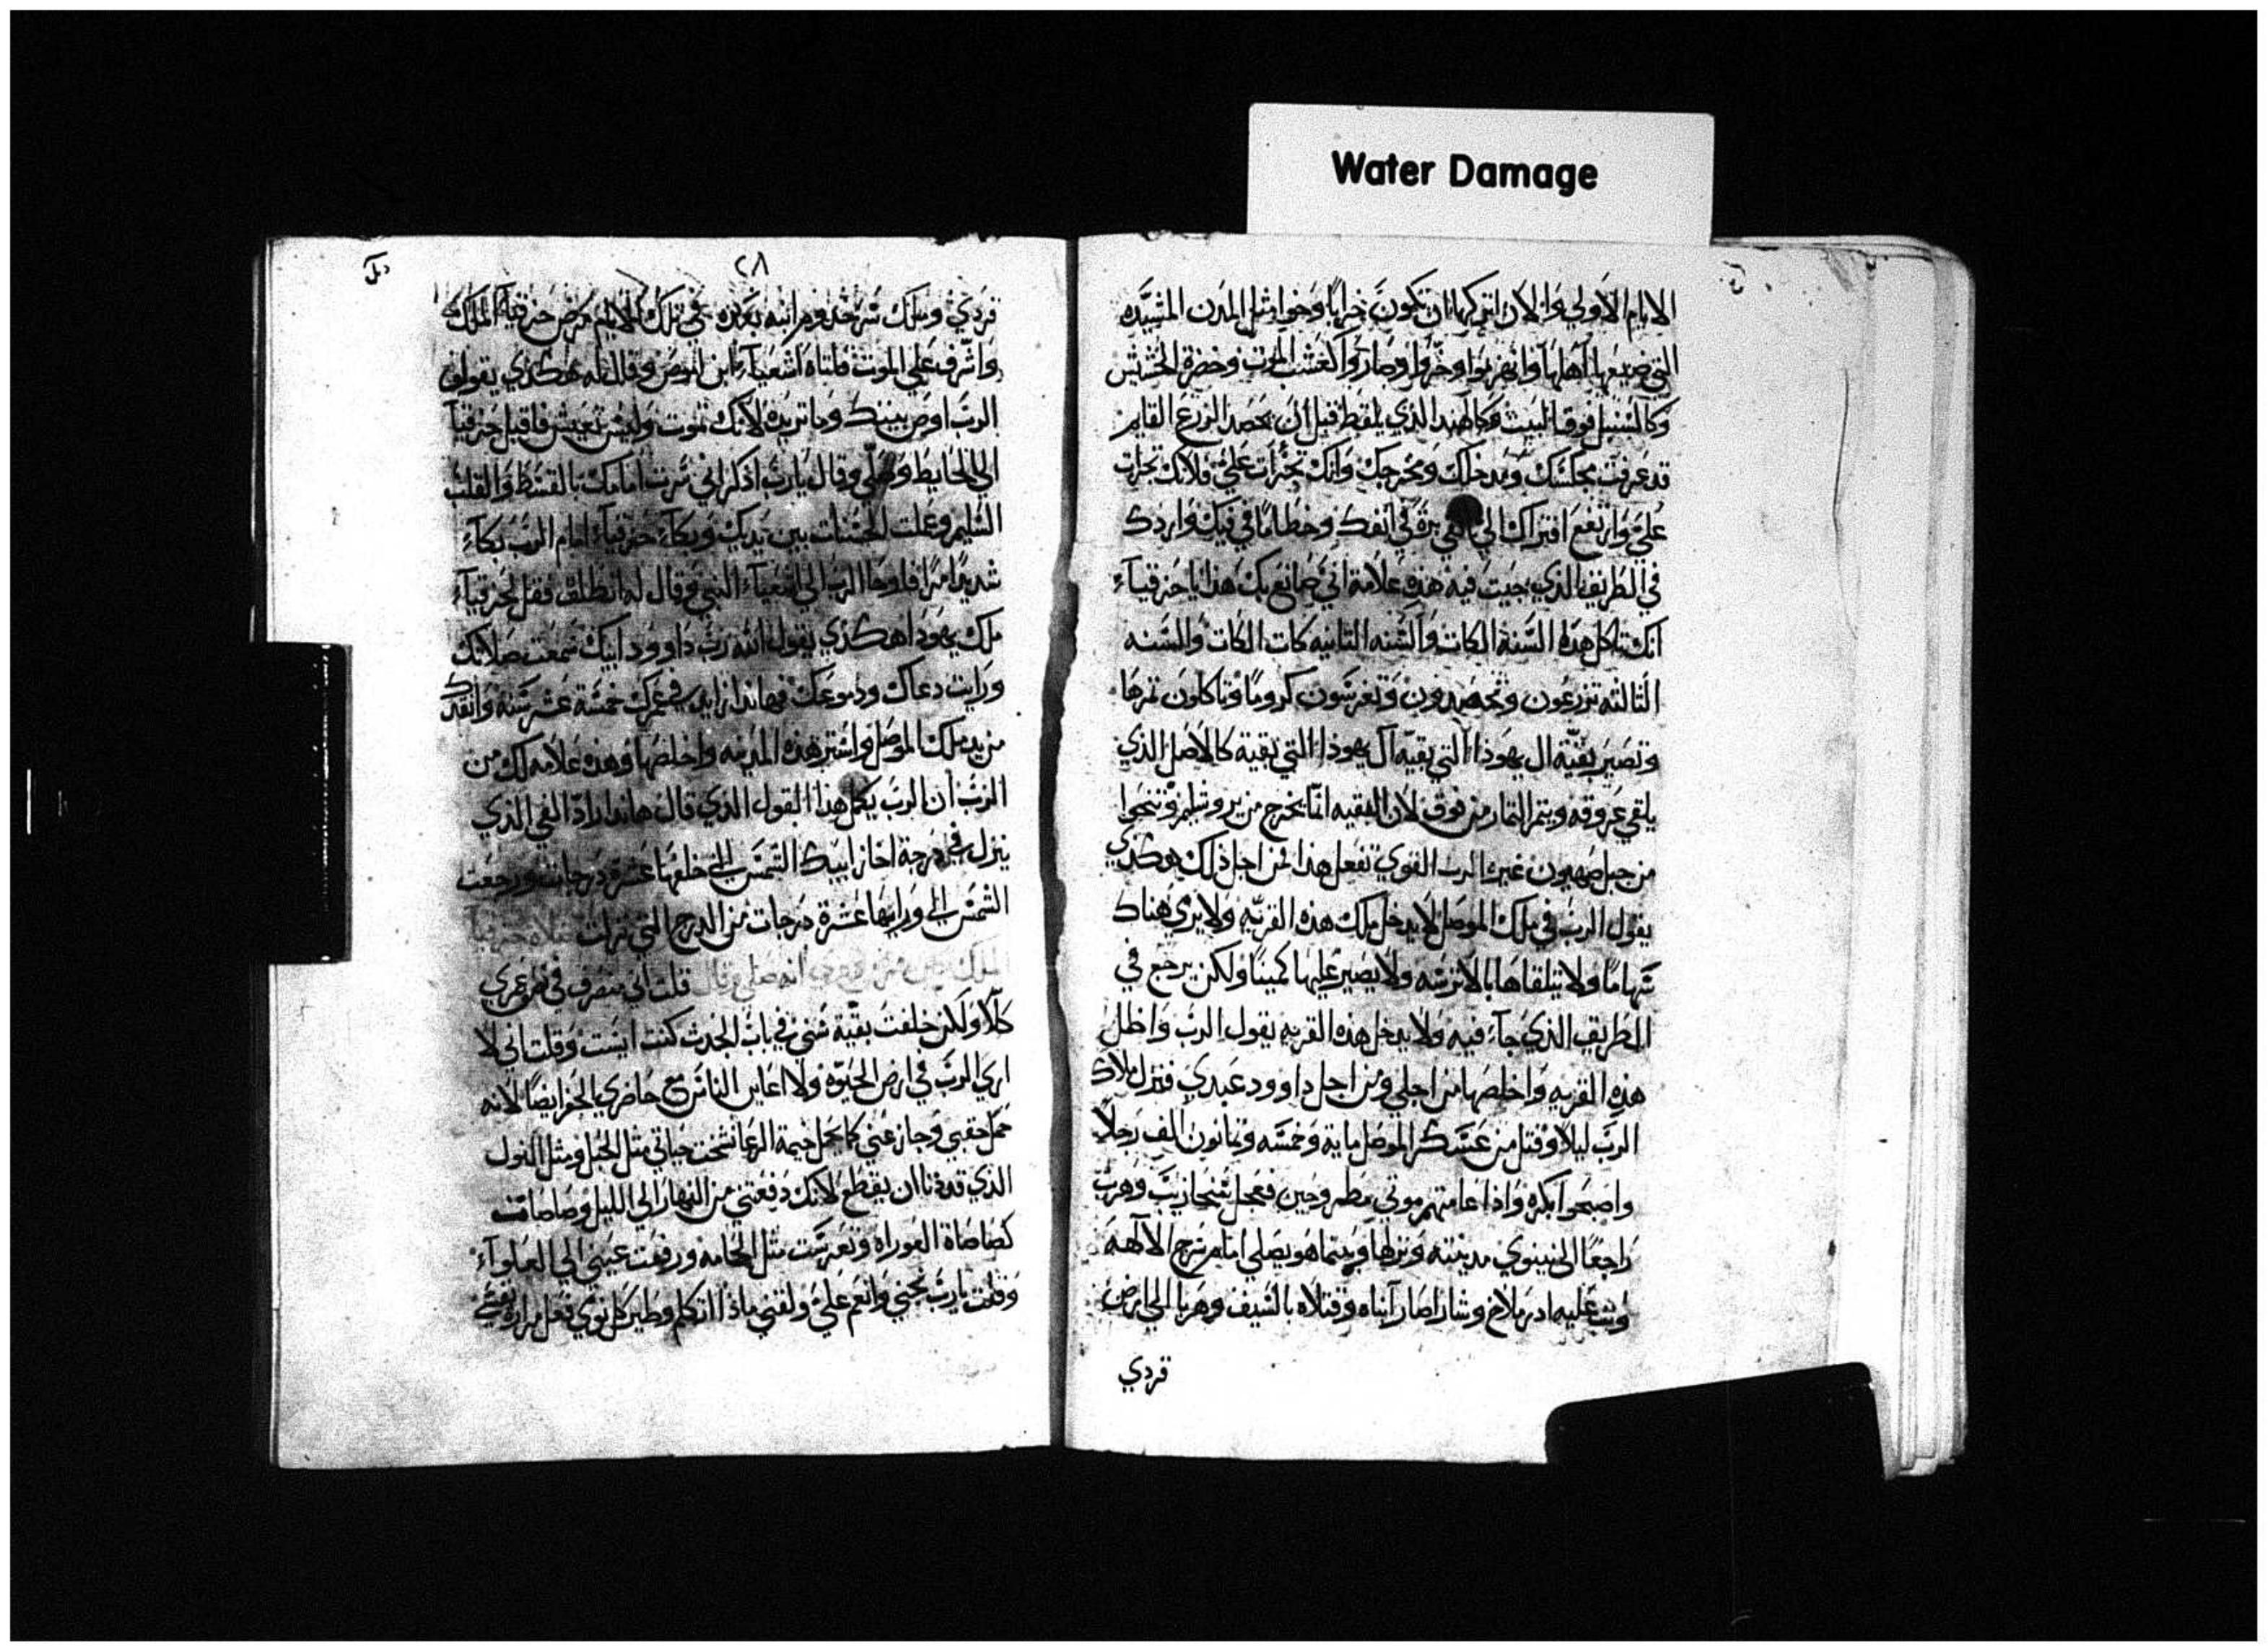 Water Damage
الايام الاولي والان اتركها ان تكون خرابًا وخوا مثل المدن المشيده
التي ضيعها اهلها وانهزبوا وخزوا وصاروا كعشب الموت وخضرة الحشيش
وكالسنبل فوق البيت وكالهندا الذي يلقط قبل ان يحصد الزرع القايم
قد عرفت مجلسك ومدخلك ومخرجك وانك تجرات علي فلانك تجرات
علي وارتفع افتراك الي القي برة في انفك وخطامًا في فيك واردك
في الطريق الذي جيت فيه هذه علامة اني صانع بك هذا يا حزقياء
انك تاكل هذه السنة الكات والسنه التانيه كات الكات والسنه
الثالثه تزرعون وتحصدون وتغرسون كرومًا وتاكلون تمرها
وتصير بقيّة ال يهوذا التي بقيه آل يهوذا التي بقية كالاصل الذي
يلقي عروقه ويتمر التمار من فوق لان البقيه انما يخرج من يروشليم وتنجوا
من جبل صهيون غيرة الرب القوي تفعل هذا لمن اجل ذلك هكذي
يقول الرب في ملك الموصل لا يدخل ملك هذه القريه ولا يري هناك
سهامًا ولا يتلقاها بالاترسه ولا يصير عليها كمينًا ولكن يرجع في
الطريق الذي جآء فيه ولا يدخل هذه القريه يقول الرب واظل
هذه القريه واخلصها من اجلي ومن اجل داوود عبدي فنزل ملاك
الرب ليلا وقتل من عسكر الموصل ماية وخمسه وتمانون الف رجلا
واصبحوا بكره واذا عامتهم موتي مطروحين فعجل سنحاريب وهرب
راجعًا الي نينوي مدينته ونزلها وبينما هو يصلي امام سرج الالهه
وثب عليه ادرملاخ وشاراصار آبناه وقتلاه بالسيف وهربا الي ارض
قردي
٢٨
قردي وملك سرحدوم ابنه بعده في تلك الايام مرض حزقيآ الملك
واشرف علي الموت فاتاه اشعيآء ابن اموص وقال له هكذي يقول
الرب اوص ببيتك وما تريده لانك تموت وليس تعيش فاقبل حزقيآ
الي الحايط وصلي وقال يارب اذكر اني سرت امامك بالقسط والقلب
السليم وعملت الحسنات بين يديك وبكآء حزقيآء امام الرب بكآء
شديدًا مرًا فاوحا الرب الي اشعيآء النبي وقال له انطلق فقل لحزقيآء
ملك يهودا هكذي يقول الله رب داوود ابيك سمعت صلاتك
ورايت دعاك ودموعك فهاندا زايد في عمرك خمسة عشر سنة وانقدك
من يد ملك الموصل واستر هذه المدينه واخلصها وهذه علامه لك من
الرب ان الرب يكمل هذا القول الذي قال هاندا رادّ الفي الذي
ينزل في درجة احاز ابيك الشمس الي خلفها عشرة درجات ورجعت
الشمس الي ورايها عشرة درجات من الدرج التي نزلت صلاه حزقيآ
الملك انه صلي وقال قلت اني منصرف في نصف عمري
كلًا ولكن خلفت بقية سني في باب الجدث كنت ايست وقلت اني لا
اري الرب في ارض الحيوّة ولا اعاين الناس مع حاضري الحفر ايضًا لانه
حمل حقبي وجاز عني كما يحمل خيمة الرعاة سحت حياتي مثل الحبل ومثل النول
الذي قد دنا ان يقطع لانك دفعتني من النهار الي الليل وصاصات
كصاصاة العوراه ونعرست مثل الحامه ورفعت عيني الي العلوآء
وقلت يارب نجني وانعم علي ولقني ماذا اتكلم وطير كل نومي فعل مرارة نفسي